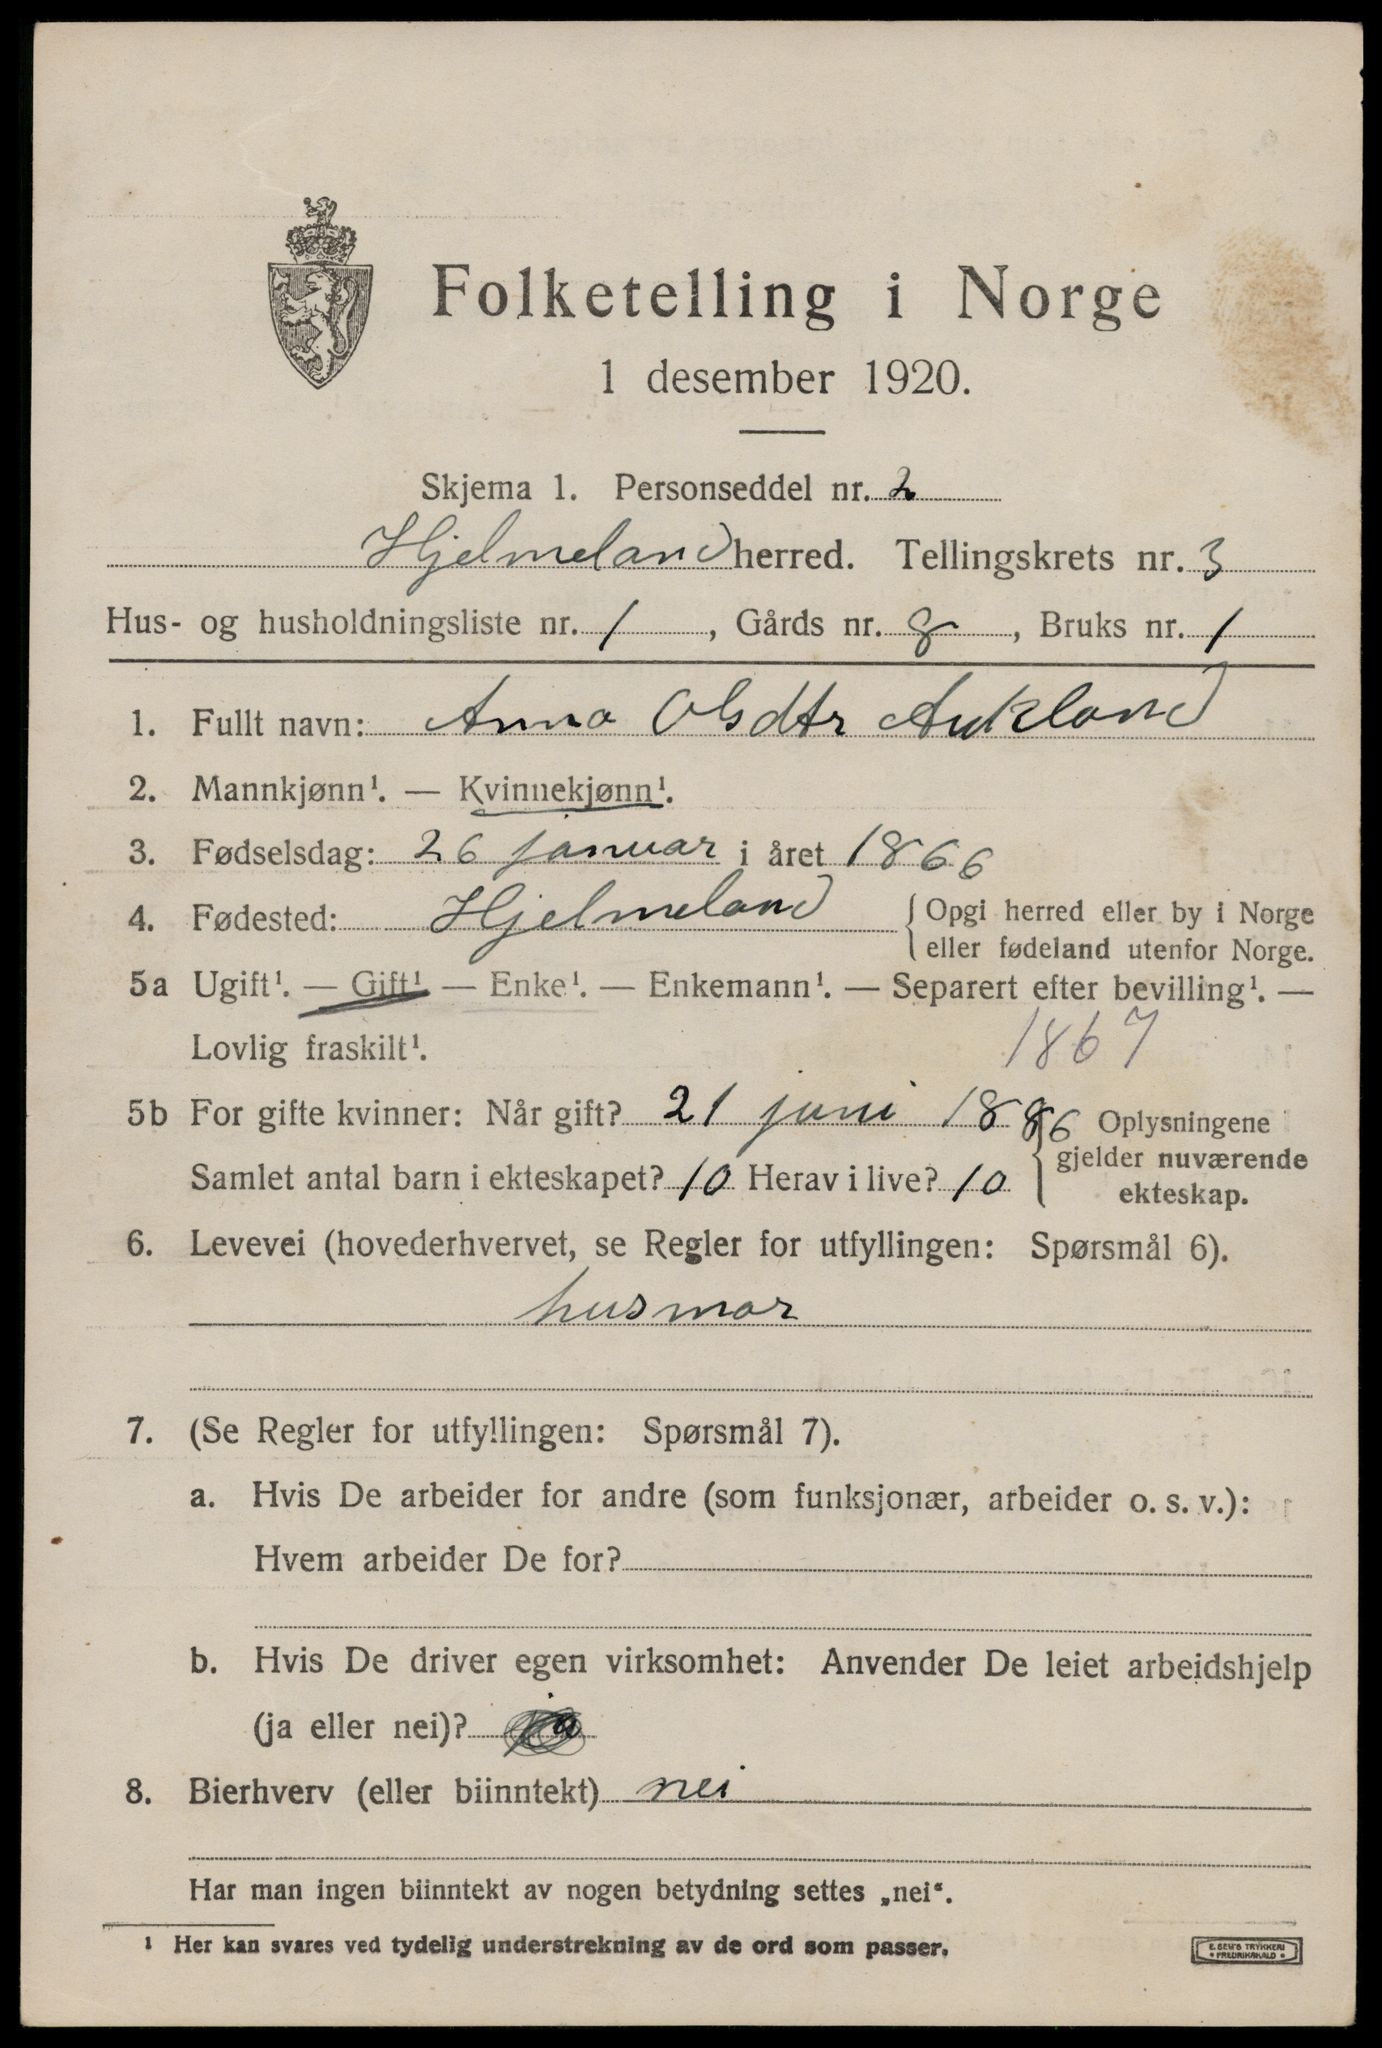 Folketelling i Norge
1 desember 1920.
Skjema 1. Personseddel nr. 2
Hjelmeland herred. Tellingskrets nr. 3
Hus- og husholdningsliste nr. 1, Gårds nr. 8, Bruks nr. 1
1. Fullt navn: Anna Olsdtr Aukland
2. Mannkjønn¹. — Kvinnekjønn¹.
3. Fødselsdag: 26 januar i året 1866
4. Fødested: Hjelmeland {Opgi herred eller by i Norge
eller fødeland utenfor Norge.
5a Ugift¹. — Gift¹ — Enke¹. — Enkemann¹. — Separert efter bevilling¹. —
Lovlig fraskilt¹. 1867
5b For gifte kvinner: Når gift? 21 juni 1886 Oplysningene
gjelder nuværende
Samlet antal barn i ekteskapet? 10 Herav i live? 10 ekteskap.
6. Levevei (hovederhvervet, se Regler for utfyllingen: Spørsmål 6).
husmor
7. (Se Regler for utfyllingen: Spørsmål 7).
a. Hvis De arbeider for andre (som funksjonær, arbeider o. s. v.):
Hvem arbeider De for?
b. Hvis De driver egen virksomhet: Anvender De leiet arbeidshjelp
(ja eller nei)? ja
8. Bierhverv (eller biinntekt) nei
Har man ingen biinntekt av nogen betydning settes „nei“.
¹ Her kan svares ved tydelig understrekning av de ord som passer.
E. SEM'S TRYKKERI
• FREDRIKSHALD •